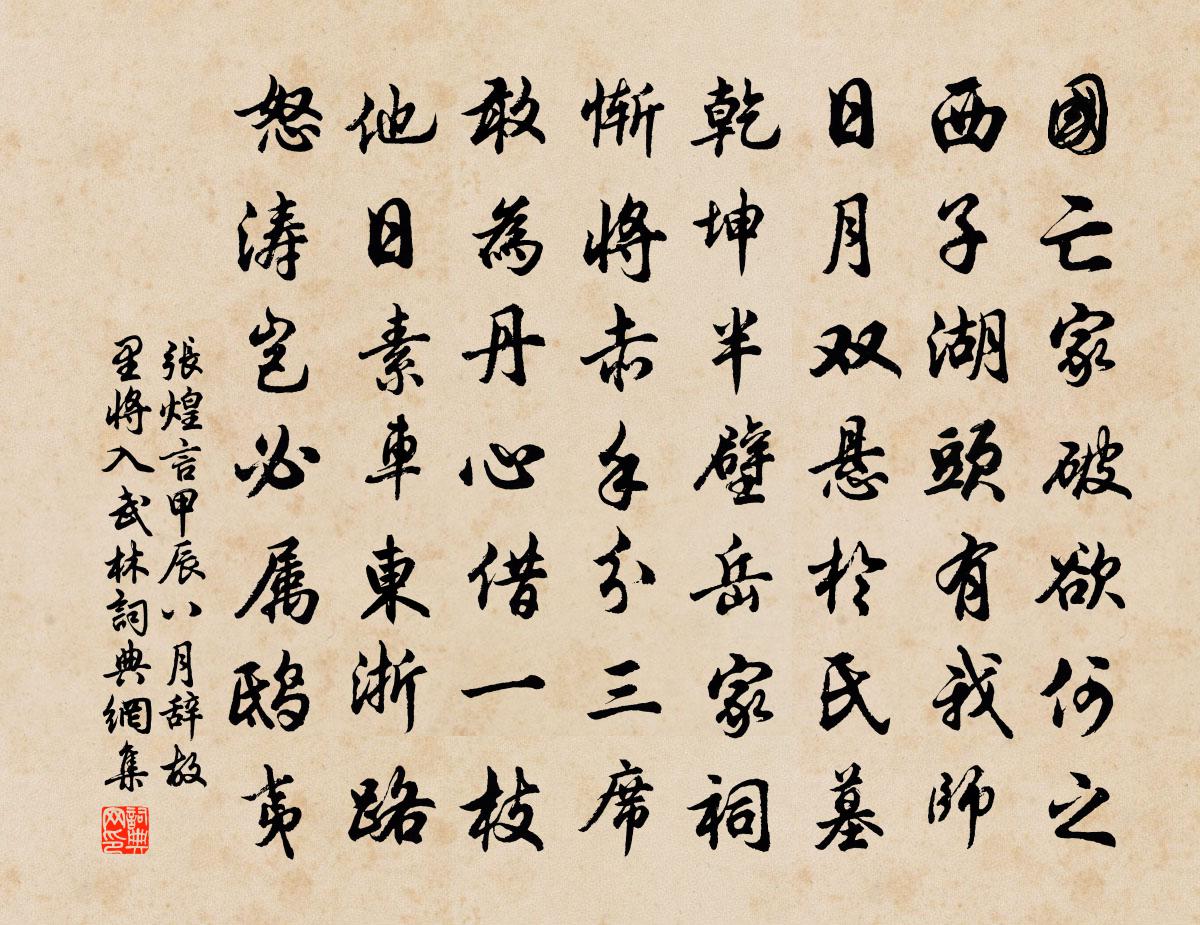 國亡家破欲何之
西子湖頭有我師
日月双悬於氏墓
乾坤半壁岳家祠
惭将赤手分三席
敢為丹心借一枝
他日素車東浙路
怒涛岂必属鸱夷
張煌言甲辰八月辞故
里将入武林詞典網集
詞典网印